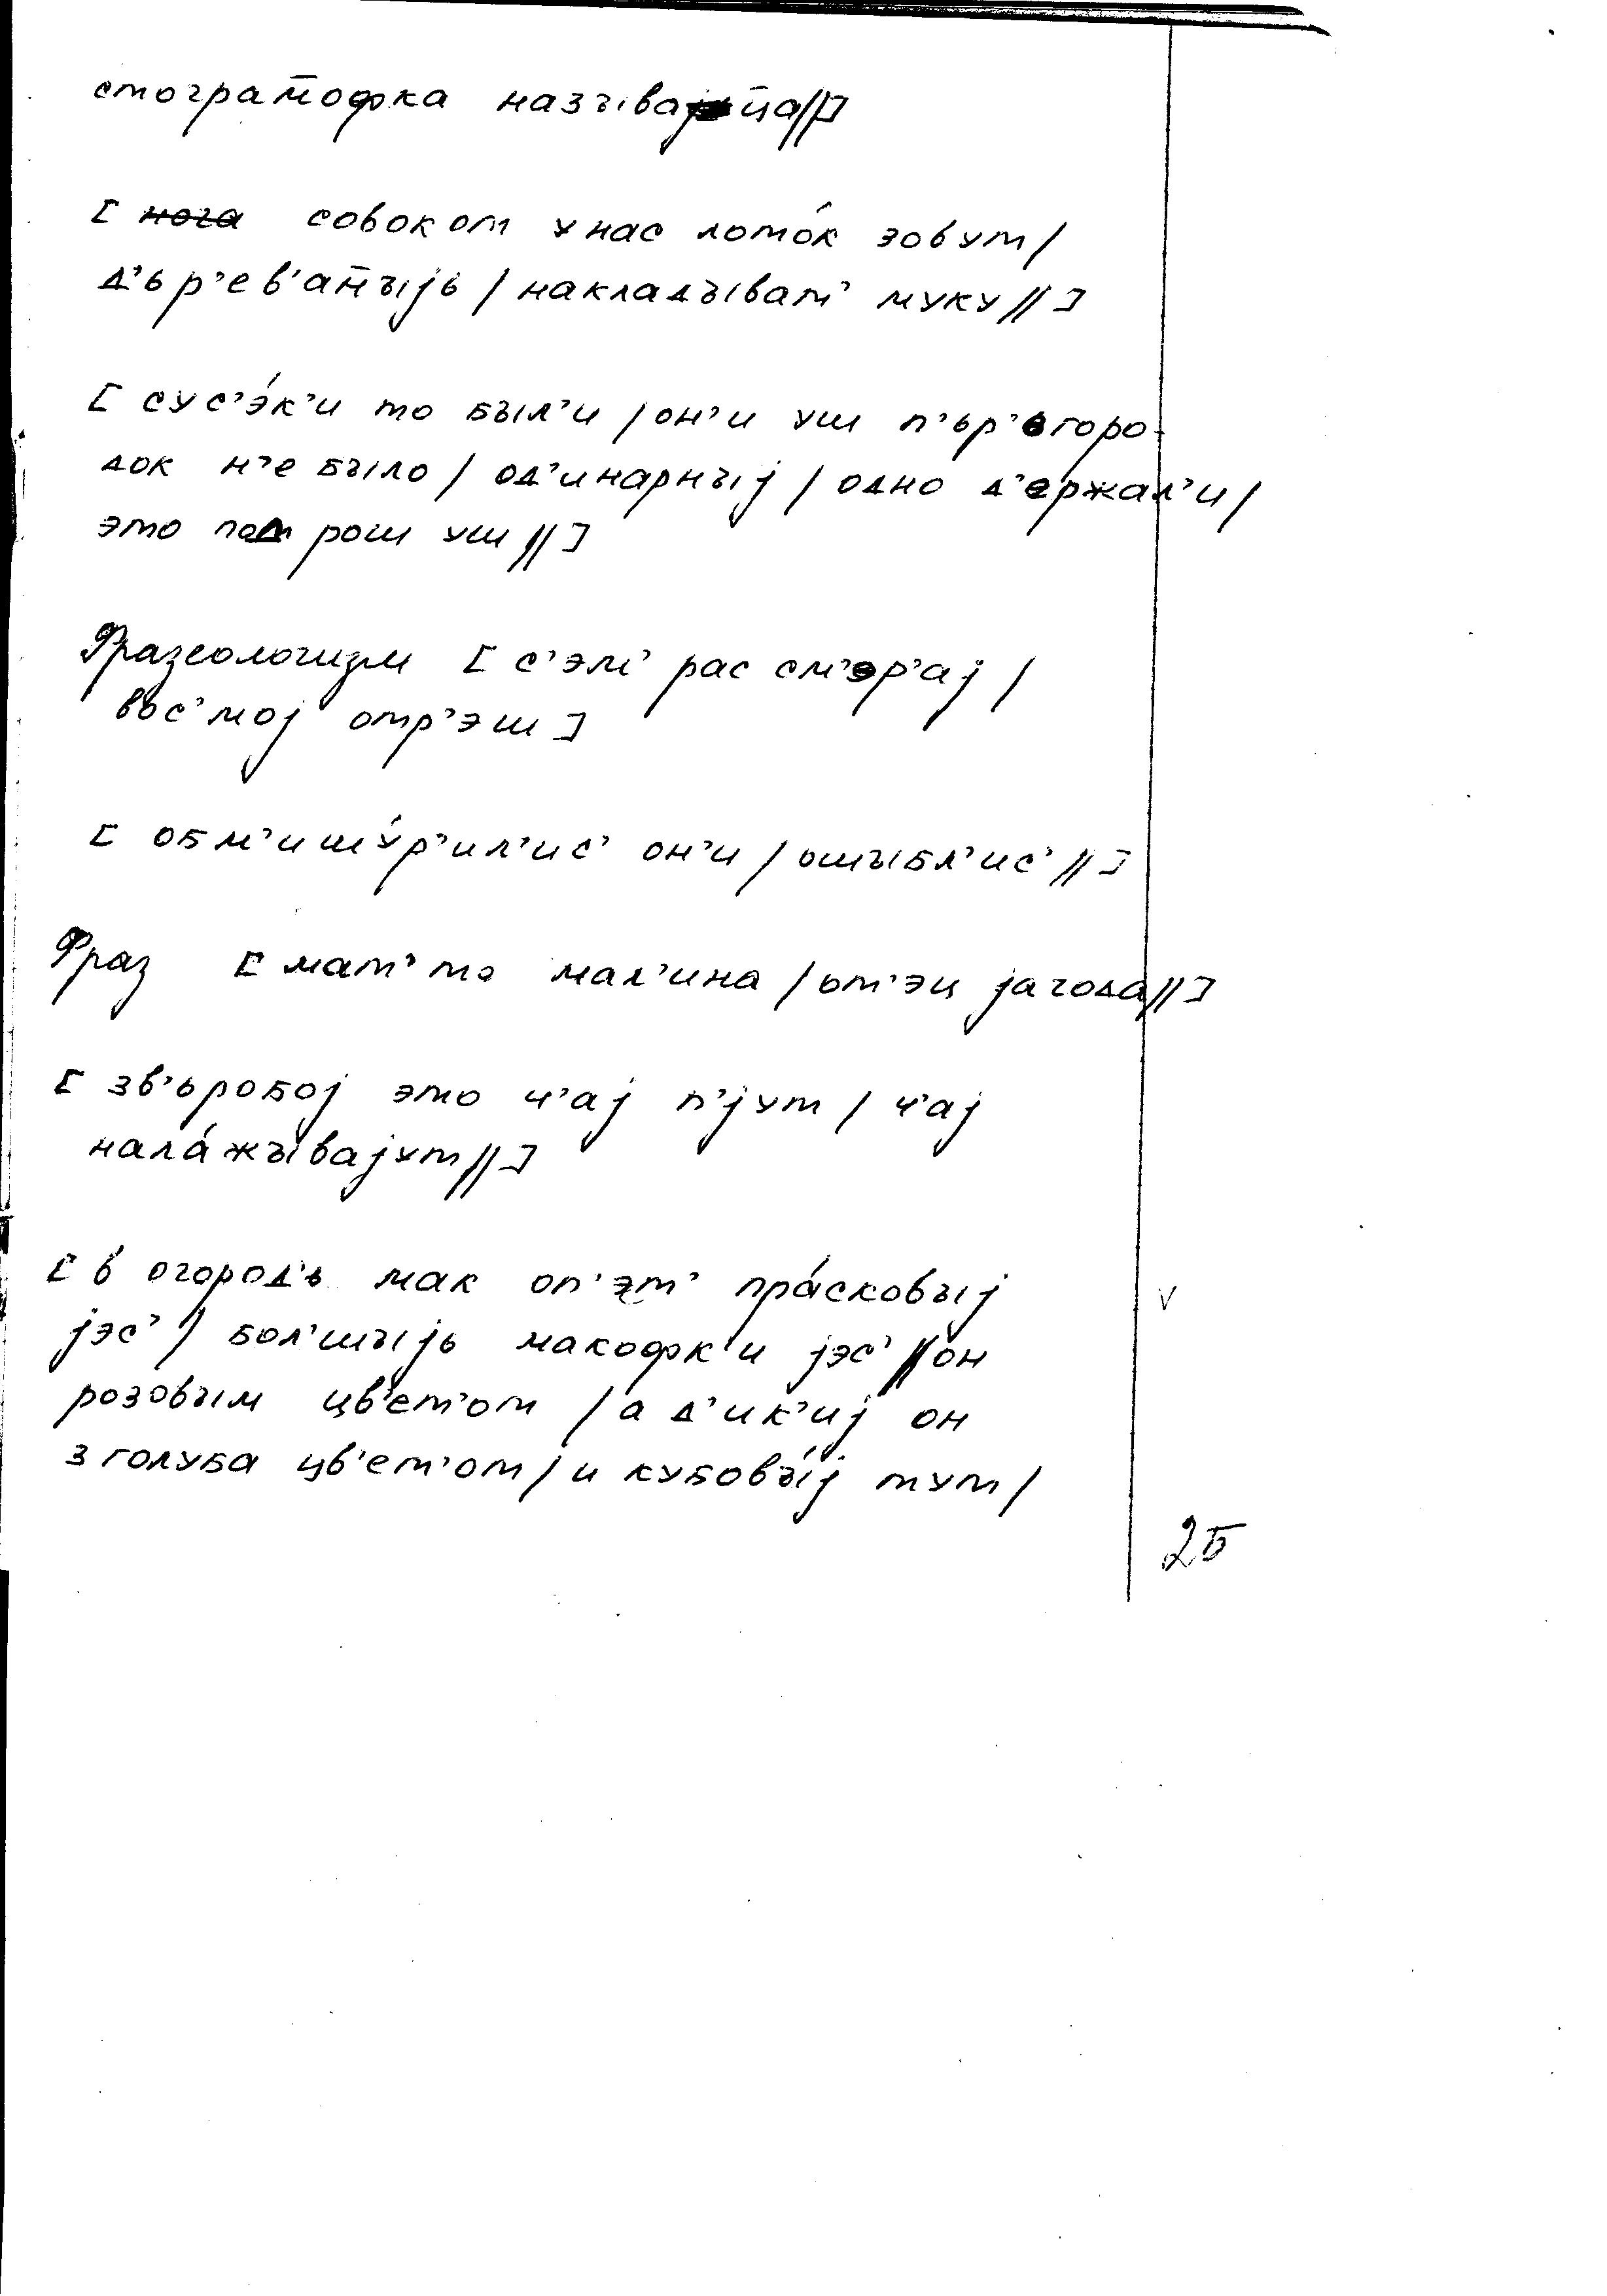 стограм̄офка назъıвајц̄а//]
[ нога совоком у нас лото́к зовут/
д’ьр’ев’ан̄ъıјь/накладъıват’ муку//]
[ сус’э́к’и то бъıл’и/он’и уш п’ьр’егоро-
док н’е бъıло/од’инарнъıј/одно д’ержал’и/
это под рош уш//]
Фразеологизм [ с’эм’ рас см’эр’ај/
вос’мој отр’эш]
[ обм’ишу́р’ил’ис’ он’и/ошъıбл’ис’//]
Фраз [ мат’ то мал’ина/от’эц јагода//]
[ зв’ьробој это ч’ај п’јут/ч’ај
нала́жъıвајут//]
[ в огород’ь мак оп’эт’ пра́сковъıј
јэс’/бол’шъıјь макофк’и јэс’//он
розовъıм цв’ет’ом/а д’ик’иј он
з голуба цв’ет’ом/и кубовъıј тут/
v
2Б